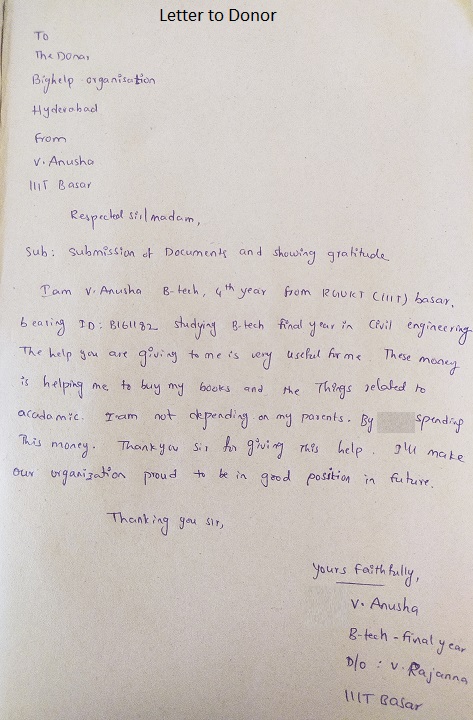 Letter to Donor
To
The Donar
Bighelp organisation
Hyderabad
from
V. Anusha
IIIT Basar
Respected sir/madam,
Sub: Submission of Documents and showing gratitude
I am V. Anusha B-tech, 4th year from RGUKT (IIIT) basar,
bearing ID: B161182 studying B-tech final year in Civil engineering
The help you are giving to me is very useful for me. These money
is helping me to buy my books and the Things related to
acadamic. I am not depending on my parents. By spending
This money. Thankyou sir for giving This help. I'll make
our organization proud to be in good position in future.
Thanking you sir,
yours faithfully,
V. Anusha
B-tech - final year
D/o : V. Rajanna
IIIT Basar